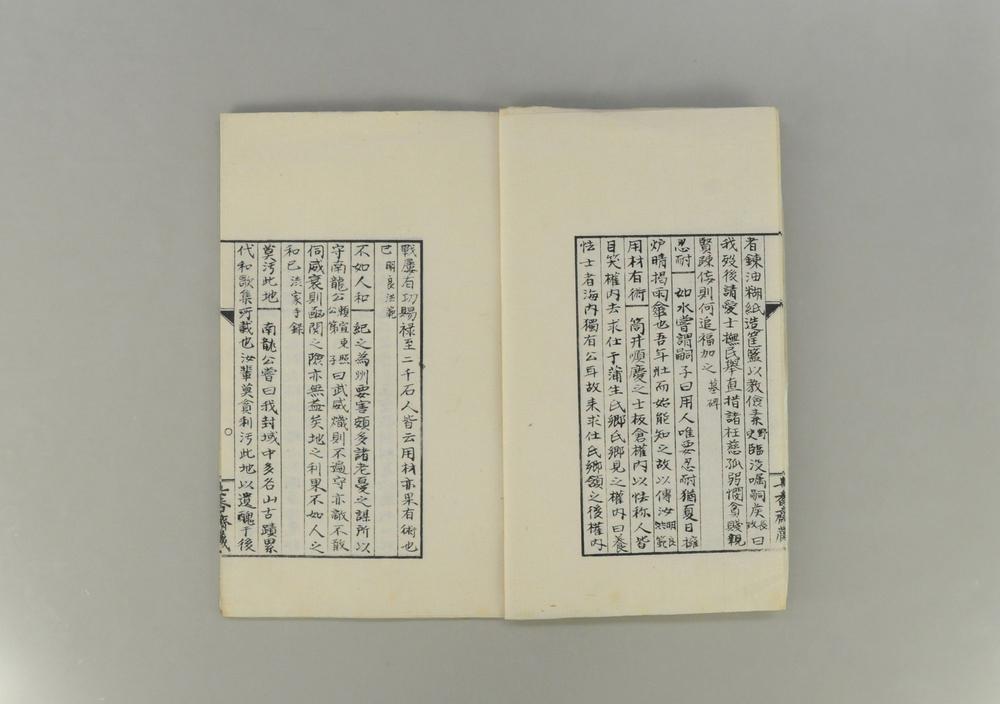 者錬油糊紙造筐籃以教儉素野史臨没嘱嗣侯長政曰
我歿後請愛士撫民擧直措諸枉慈孤弱憫貧賤親
賢疎佞則何追福加之墓碑
忍耐 如水嘗謂嗣子曰用人唯要忍耐猶夏日擁
炉晴揭雨傘也吾年壯而始能知之故以傳汝明良洪範
用材有術 筒井順慶之士板倉權内以怯称人皆
目笑權内去求仕于蒲生氏郷氏郷見之權内曰養
怯士者海内獨有公耳故来求仕氏郷領之後權内
戰屢有功賜禄至二千石人皆云用材亦果有術也
已明良洪範
不如人和 紀之為州要害頗多諸老憂之謀所以
守南龍公頼宣東照公第子曰武威熾則不過守亦敵不敢
伺威衰則函関之險亦無益矣地之利果不如人之
和已 家手録
莫汚此地 南龍公嘗曰我封域中多名山古蹟累
代和歌集所載也汝輩莫貪利汚此地以遺醜于後
香齋藏